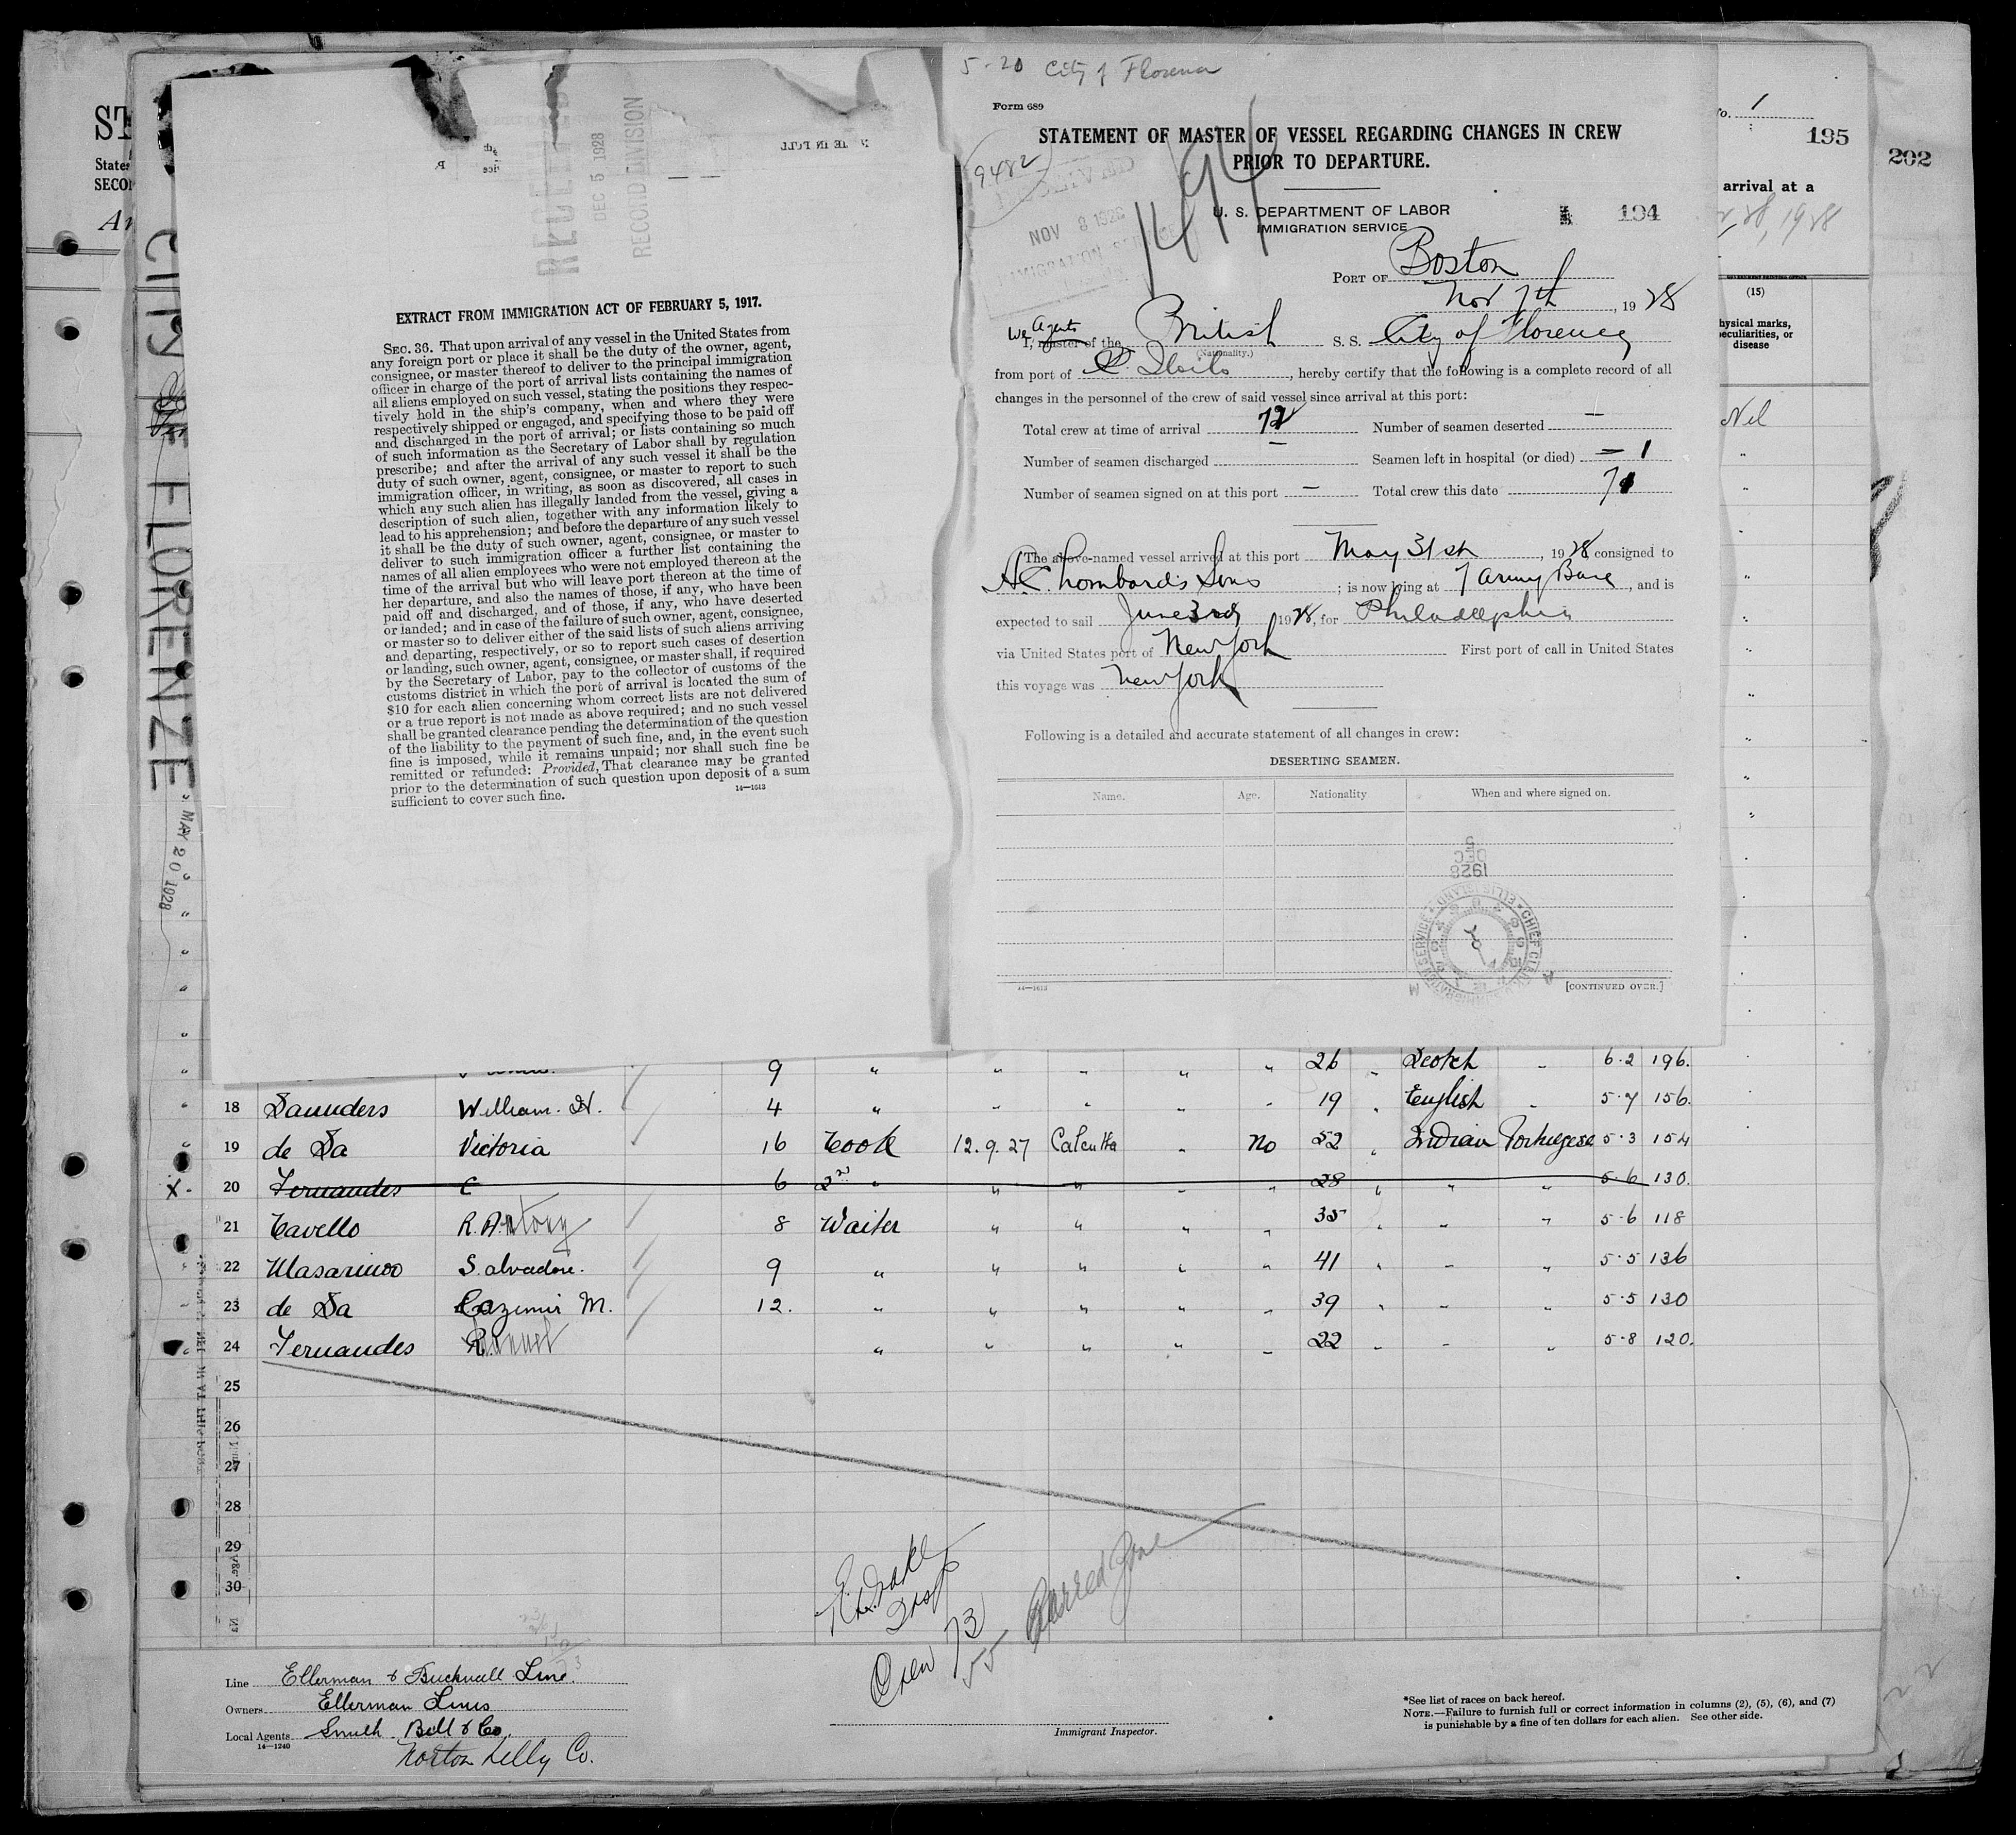 5-20 City of Florence
Form 689
STATEMENT OF MASTER OF VESSEL REGARDING CHANGES IN CREW
PRIOR TO DEPARTURE.
9482
1494
NOV 8 1928
U. S. DEPARTMENT OF LABOR
IMMIGRATION SERVICE
194
PORT OF Boston
Nov 7th, 1928
We Agents
I, master of the British S. S. City of Florence
(Nationality.)
from port of Iloilo, hereby certify that the following is a complete record of all
changes in the personnel of the crew of said vessel since arrival at this port:
Total crew at time of arrival 72 Number of seamen deserted —
Number of seamen discharged — Seamen left in hospital (or died) — 1
Number of seamen signed on at this port — Total crew this date 71
The above-named vessel arrived at this port May 31st, 1928 consigned to
A.C. Lombards Sons; is now lying at 7 Army Base, and is
expected to sail June 3rd 1928, for Philadelphia
via United States port of New York First port of call in United States
this voyage was New York
Following is a detailed and accurate statement of all changes in crew:
DESERTING SEAMEN.
Name. Age. Nationality When and where signed on.
5
DEC
1928
14—1613
[CONTINUED OVER.]
RECEIVED
DEC 5 1928
RECORD DIVISION
EXTRACT FROM IMMIGRATION ACT OF FEBRUARY 5, 1917.
SEC. 36. That upon arrival of any vessel in the United States from
any foreign port or place it shall be the duty of the owner, agent,
consignee, or master thereof to deliver to the principal immigration
officer in charge of the port of arrival lists containing the names of
all aliens employed on such vessel, stating the positions they respec-
tively hold in the ship's company, when and where they were
respectively shipped or engaged, and specifying those to be paid off
and discharged in the port of arrival; or lists containing so much
of such information as the Secretary of Labor shall by regulation
prescribe; and after the arrival of any such vessel it shall be the
duty of such owner, agent, consignee, or master to report to such
immigration officer, in writing, as soon as discovered, all cases in
which any such alien has illegally landed from the vessel, giving a
description of such alien, together with any information likely to
lead to his apprehension; and before the departure of any such vessel
it shall be the duty of such owner, agent, consignee, or master to
deliver to such immigration officer a further list containing the
names of all alien employees who were not employed thereon at the
time of the arrival but who will leave port thereon at the time of
her departure, and also the names of those, if any, who have been
paid off and discharged, and of those, if any, who have deserted
or landed; and in case of the failure of such owner, agent, consignee,
or master so to deliver either of the said lists of such aliens arriving
and departing, respectively, or so to report such cases of desertion
or landing, such owner, agent, consignee, or master shall, if required
by the Secretary of Labor, pay to the collector of customs of the
customs district in which the port of arrival is located the sum of
$10 for each alien concerning whom correct lists are not delivered
or a true report is not made as above required; and no such vessel
shall be granted clearance pending the determination of the question
of the liability to the payment of such fine, and, in the event such
fine is imposed, while it remains unpaid; nor shall such fine be
remitted or refunded: Provided, That clearance may be granted
prior to the determination of such question upon deposit of a sum
sufficient to cover such fine.
14—1613
CITY OF FLORENZE
MAY 20 1928
1
195
202
arrival at a
28, 1928
(15)
hysical marks,
eculiarities, or
disease
Nil
9 " " " " " 26 " Scotch " 6.2 196.
18 Saunders William. H. 4 " " " " " 19 " English " 5.7 156.
19 de Sa Victoria 16 Cook 12.9.27 Calcutta " No 52 " Indian Portugese 5.3 154
X 20 Fernandes C 6 2nd " " " " " 28 " " " 5.6 130.
21 Cavello R. Antony 8 Waiter " " " " 35 " " " 5.6 118
22 Masarinoo Salvadore. 9 " " " " " 41 " " " 5.5 136
23 de Sa Cazemir M. 12. " " " " " 39 " " " 5.5 130
24 Fernandes " " " " " 22 " " " 5.8 120.
25
26
27
28
29
30
Crew 73
55 Barred Zone
Line Ellerman & Bucknall Line.
Owners Ellerman Lines
Local Agents Smith Bell & Co.
14—1240
Norton Lilly Co.
Immigrant Inspector.
*See list of races on back hereof.
NOTE.—Failure to furnish full or correct information in columns (2), (5), (6), and (7)
is punishable by a fine of ten dollars for each alien. See other side.